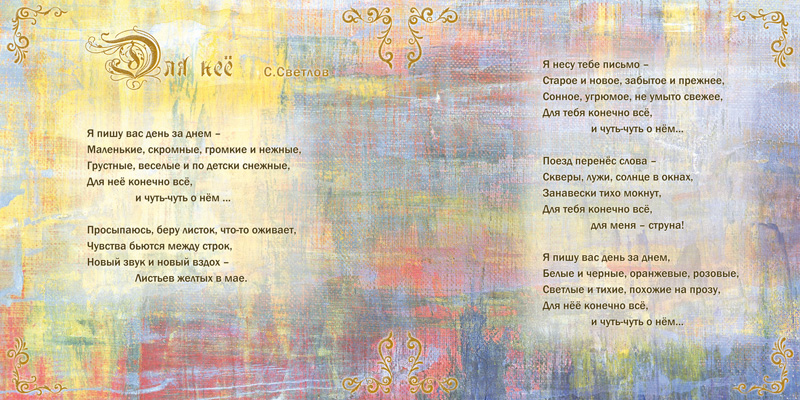 Для неё С.Светлов
Я пишу вас день за днем –
Маленькие, скромные, громкие и нежные,
Грустные, веселые и по детски снежные,
Для неё конечно всё,
и чуть-чуть о нём ...
Просыпаюсь, беру листок, что-то оживает,
Чувства бьются между строк,
Новый звук и новый вздох –
Листьев желтых в мае.
Я несу тебе письмо –
Старое и новое, забытое и прежнее,
Сонное, угрюмое, не умыто свежее,
Для тебя конечно всё,
и чуть-чуть о нём...
Поезд перенёс слова –
Скверы, лужи, солнце в окнах,
Занавески тихо мокнут,
Для тебя конечно всё,
для меня – струна!
Я пишу вас день за днем,
Белые и черные, оранжевые, розовые,
Светлые и тихие, похожие на прозу,
Для нёё конечно всё,
и чуть-чуть о нём...